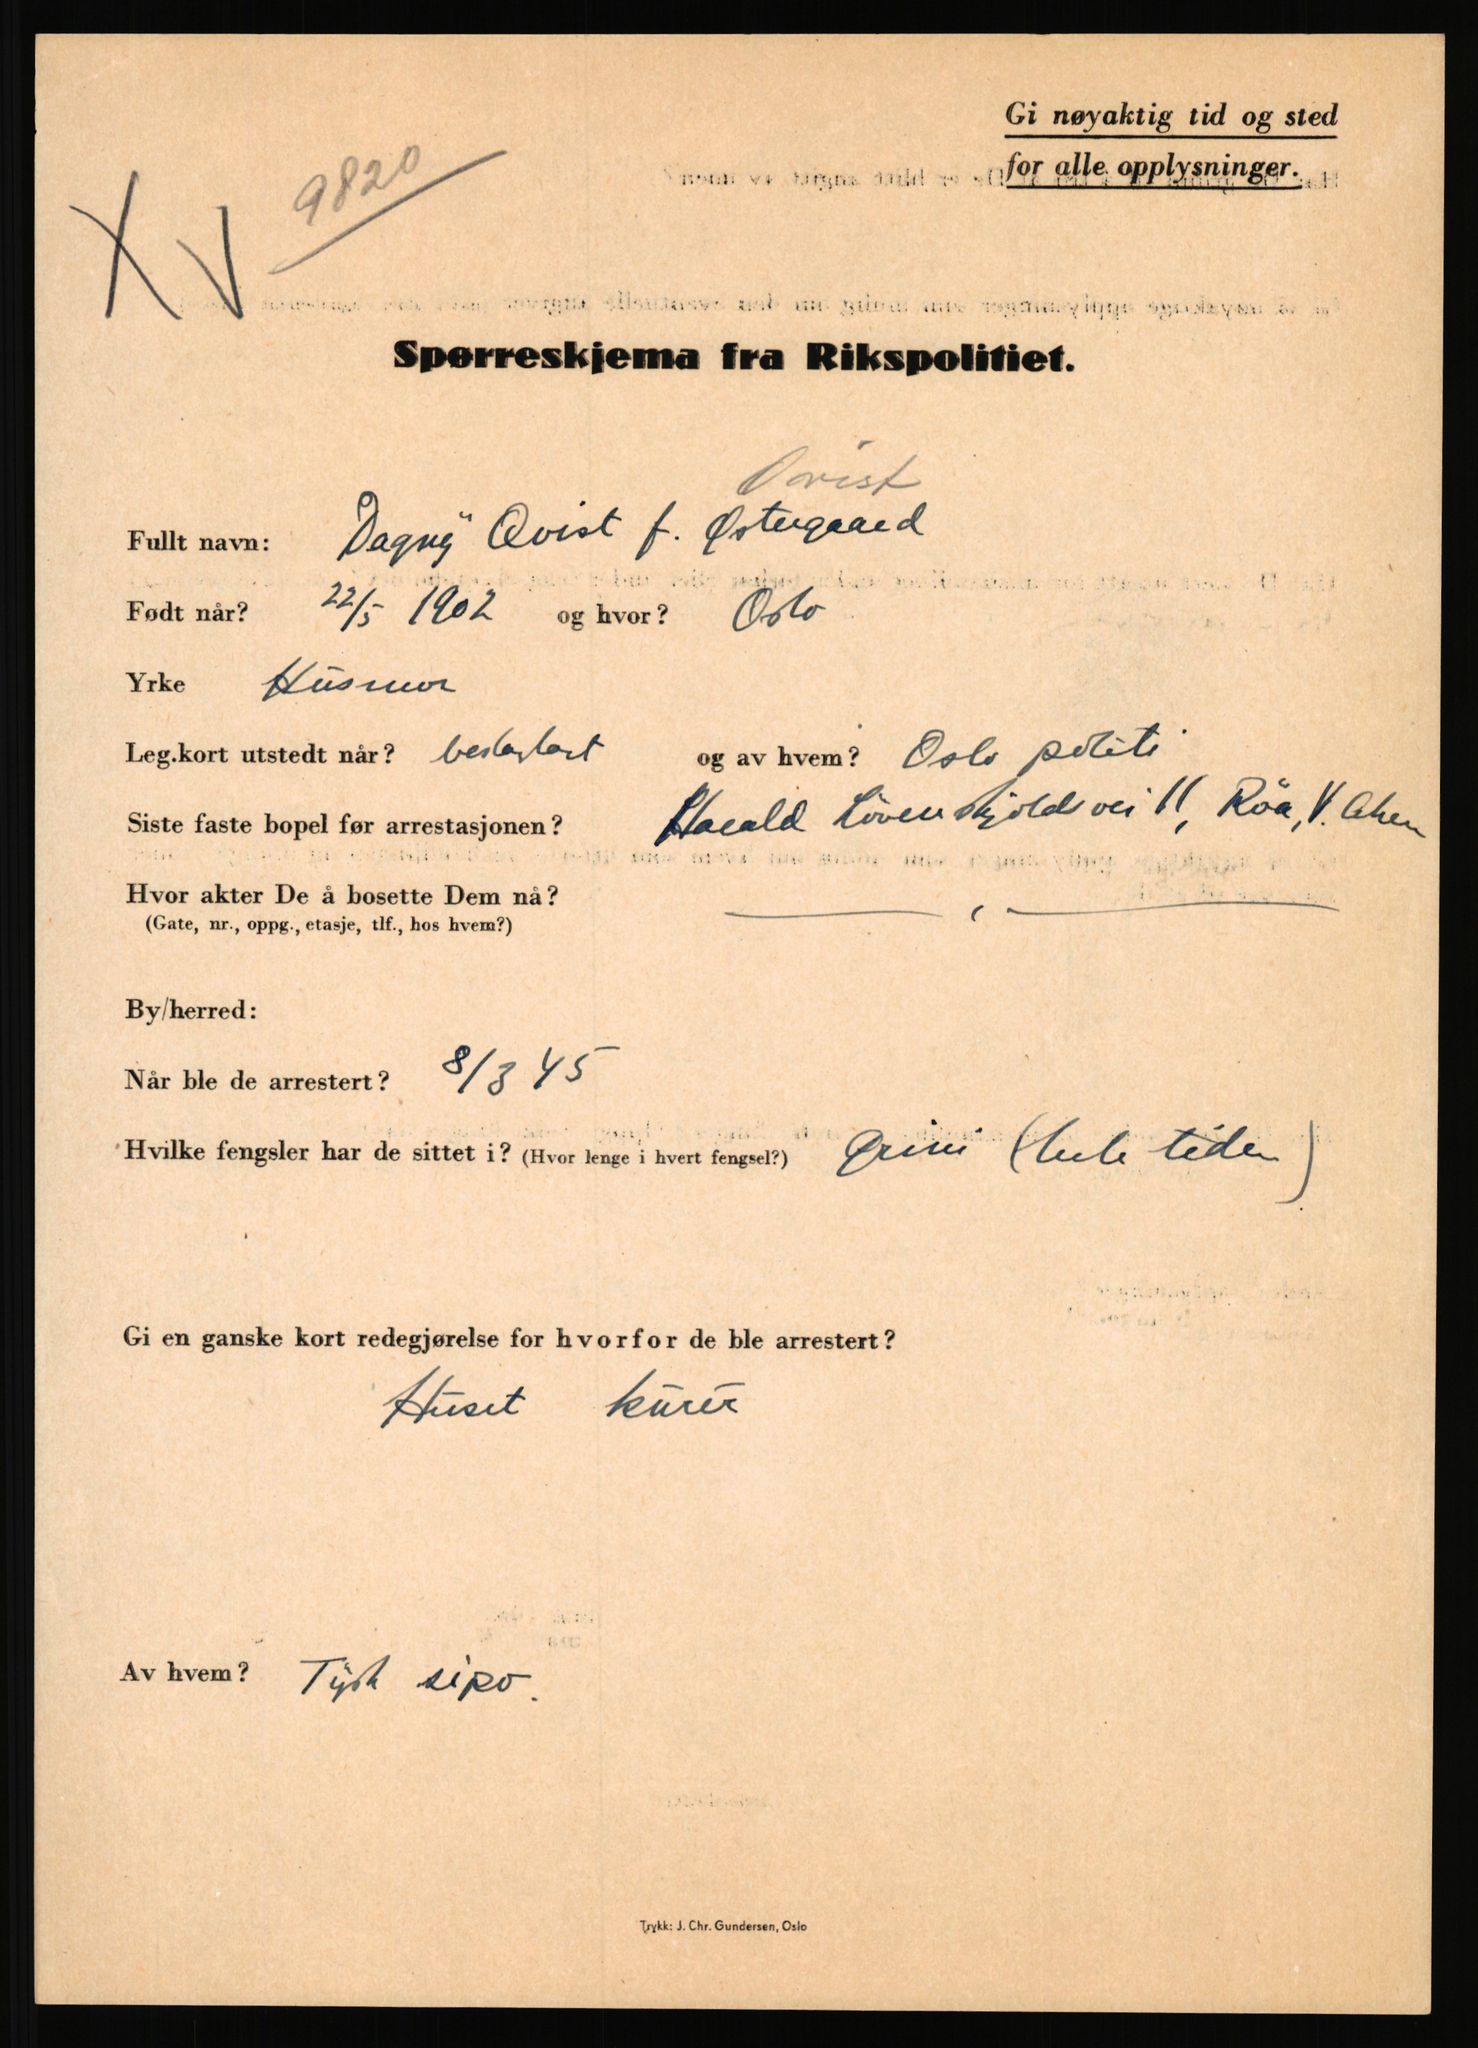 Gi nøyaktig tid og sted
for alle opplysninger.
X V 9820
Spørreskjema fra Rikspolitiet.
Qvist
Fullt navn: Dagny Qvist f. Østergaard
Født når? 22/5 1902 og hvor? Oslo
Yrke Husmor
Leg.kort utstedt når? beslaglagt og av hvem? Oslo politi
Siste faste bopel før arrestasjonen? Harald Løvenskjolds vei 11, Røa, V. Aker
Hvor akter De å bosette Dem nå? — " —
(Gate, nr., oppg., etasje, tlf., hos hvem?)
By/herred:
Når ble de arrestert? 8/3 45
Hvilke fengsler har de sittet i? (Hvor lenge i hvert fengsel?) Grini (hele tiden)
Gi en ganske kort redegjørelse for hvorfor de ble arrestert?
Huset kurér
Av hvem? Tysk sipo.
Trykk: J. Chr. Gundersen, Oslo